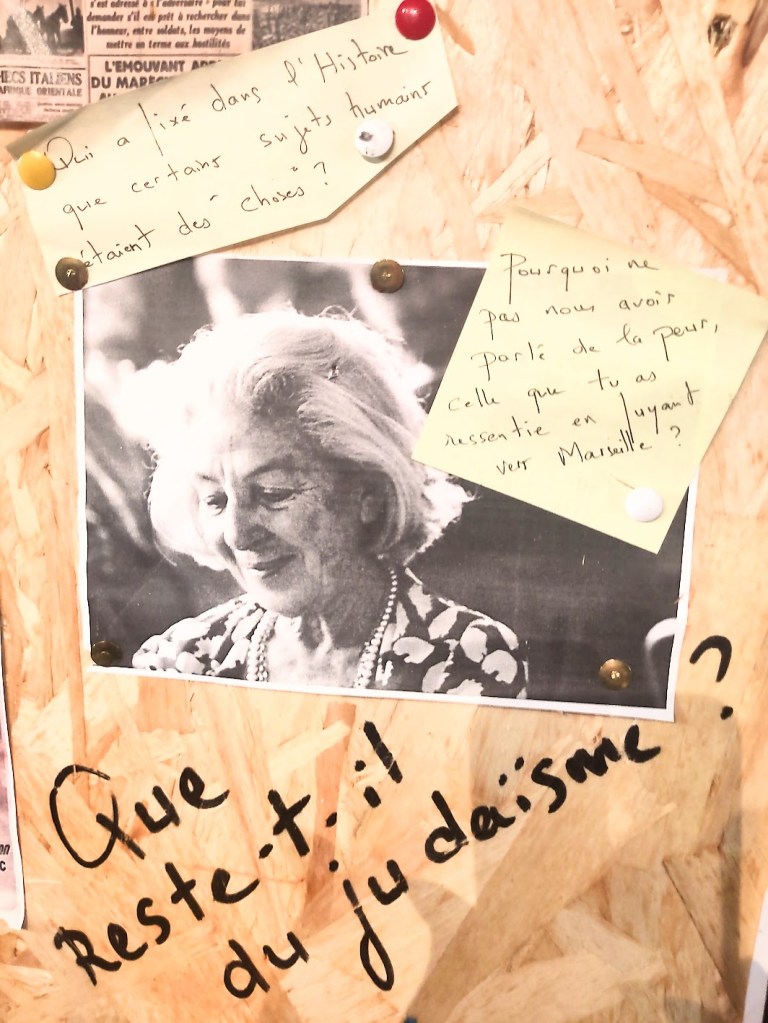 s'est adressé à l'adversaire pour lui
demander s'il est prêt à rechercher dans
l'honneur, entre soldats, les moyens de
mettre un terme aux hostilités
HECS ITALIENS
AFRIQUE ORIENTALE
L'EMOUVANT
DU MAREC
Qui a fixé dans l'Histoire
que certains sujets humains
étaient des choses ?
Pourquoi ne
pas nous avoir
parlé de la peur,
celle que tu as
ressentie en fuyant
vers Marseille ?
Que
Reste-t-il
du judaïsme ?